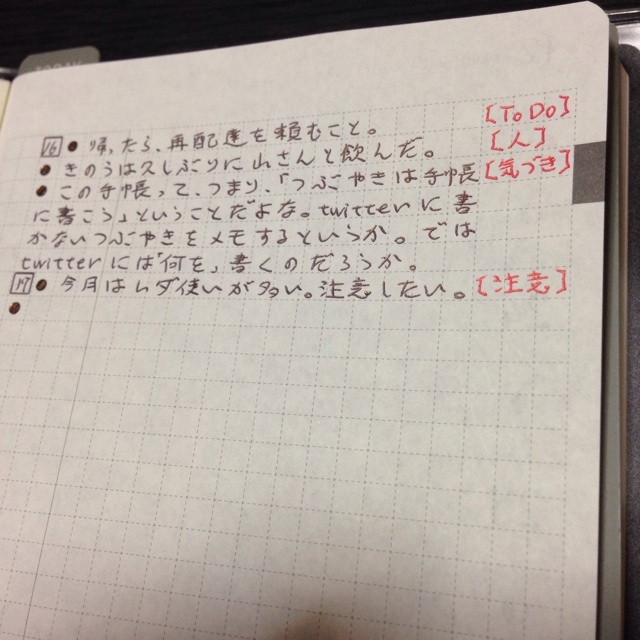 16 ● 帰ったら、再配達を頼むこと。 [To Do]
● きのうは久しぶりに山さんと飲んだ。 [人]
● この手帳って、つまり、「つぶやきは手帳 [気づき]
に書こう」ということだよな。twitterに書
かないつぶやきをメモするというか。では
twitterには「何を」書くのだろうか。
17 ● 今月はムダ使いが多い。注意したい。 [注意]
●